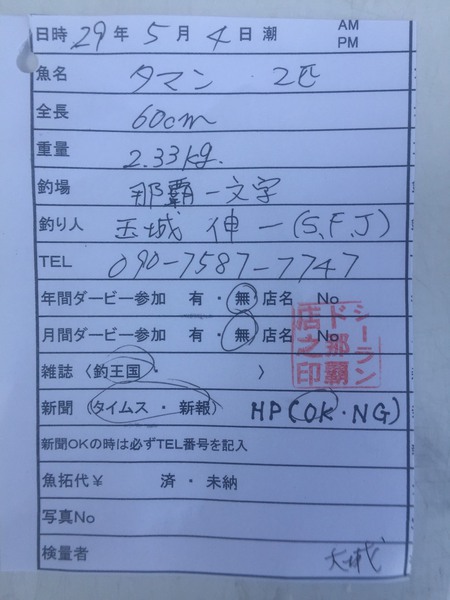 日時 29 年 5 月 4 日 潮 AM PM
魚名 タマン 2匹
全長 60cm
重量 2.33kg.
釣場 那覇一文字
釣り人 玉城 伸一(S.F.J)
TEL 090-7587-7747
年間ダービー参加 有・無・店名 No
月間ダービー参加 有・無・店名 No
シーラン
ド那覇
店之印
雑誌〈釣王国・ 〉
新聞〈タイムス・新報〉 HP(OK・NG)
新聞OKの時は必ずTEL番号を記入
魚拓代¥ 済・未納
写真No
検量者 大城